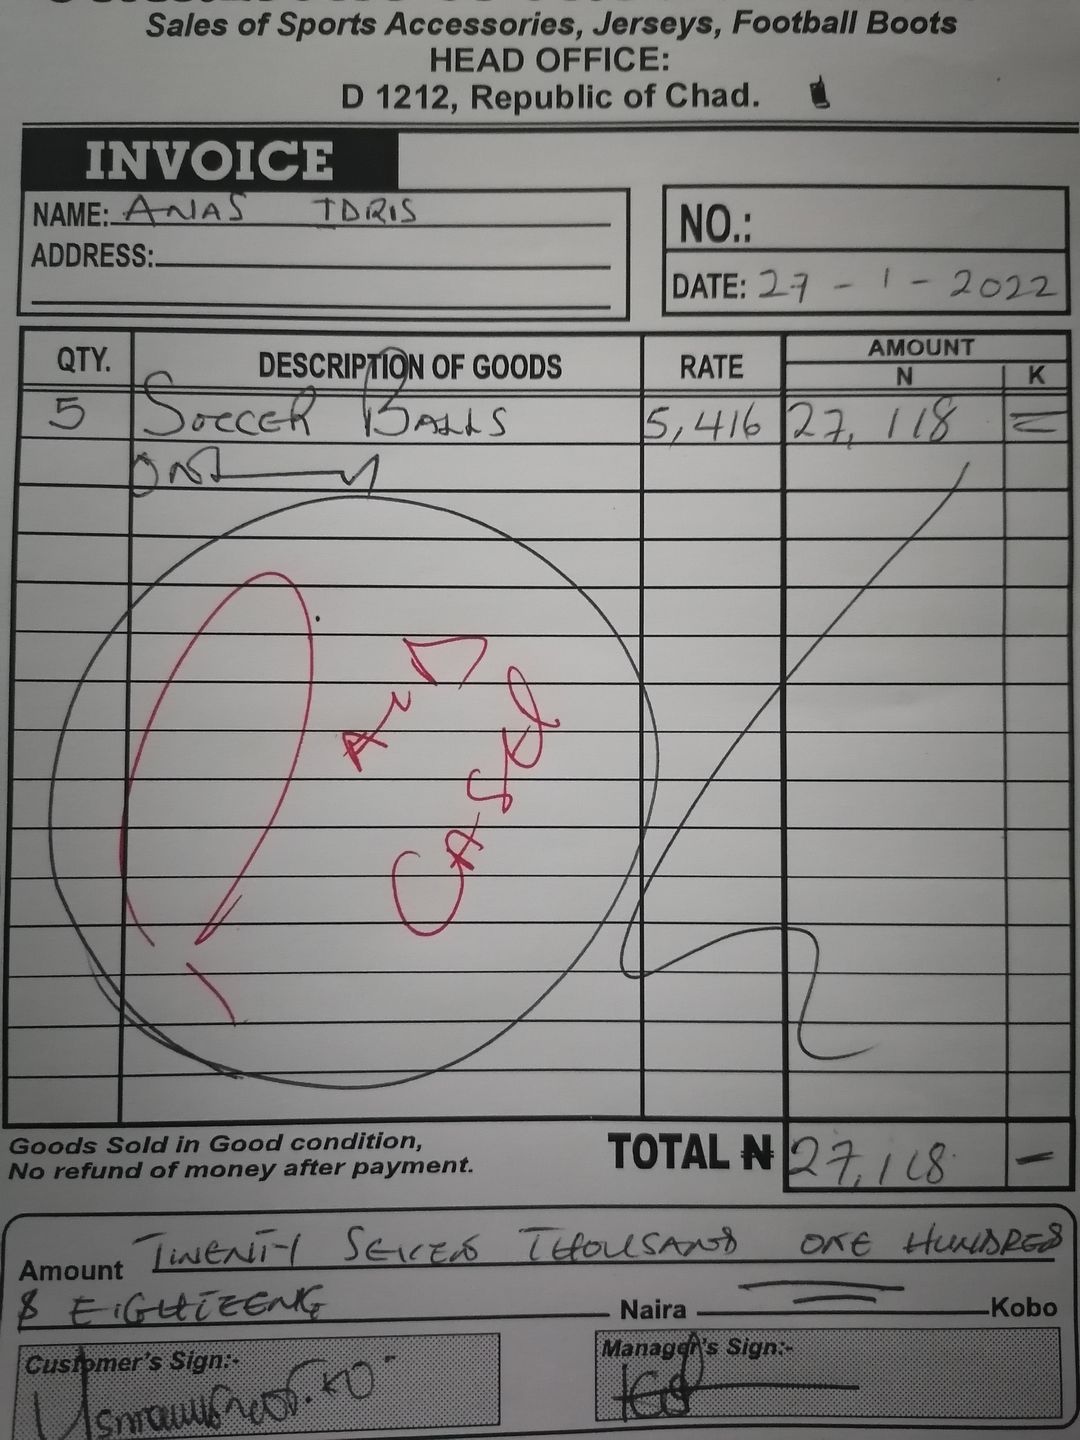 Sales of Sports Accessories, Jerseys, Football Boots
HEAD OFFICE:
D 1212, Republic of Chad.
INVOICE
NAME: ANAS IDRIS
ADDRESS:
NO.:
DATE: 27 - 1 - 2022
QTY. DESCRIPTION OF GOODS RATE AMOUNT
N K
5 SOCCER BALLS 5,416 27,118 =
ONLY
AND
CASH
Goods Sold in Good condition,
No refund of money after payment.
TOTAL ₦ 27,118 -
Amount TWENTY SEVEN THOUSAND ONE HUNDRED
& EIGHTEEN Naira Kobo
Customer's Sign:-
Manager's Sign:-